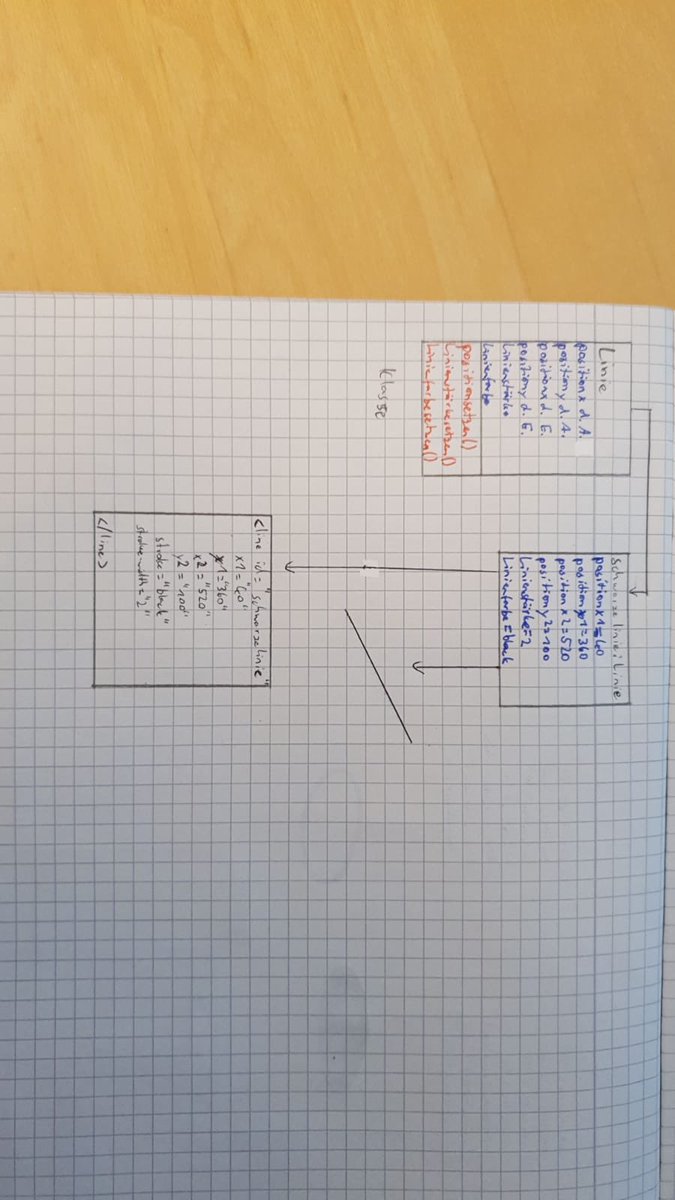 Linie
position x d. A.
position y d. A.
position x d. E.
position y d. E.
Linienstärke
Linienfarbe
positionsetzen()
Linienstärkesetzen()
Linienfarbesetzen()
Klasse
schwarzelinie: Linie
position x1=60
position y1=360
position x2=520
position y2=100
Linienstärke=2
Linienfarbe=black
<line id="schwarzelinie"
x1="60"
y1="360"
x2="520"
y2="100"
stroke="black"
stroke-width="2"
</line>